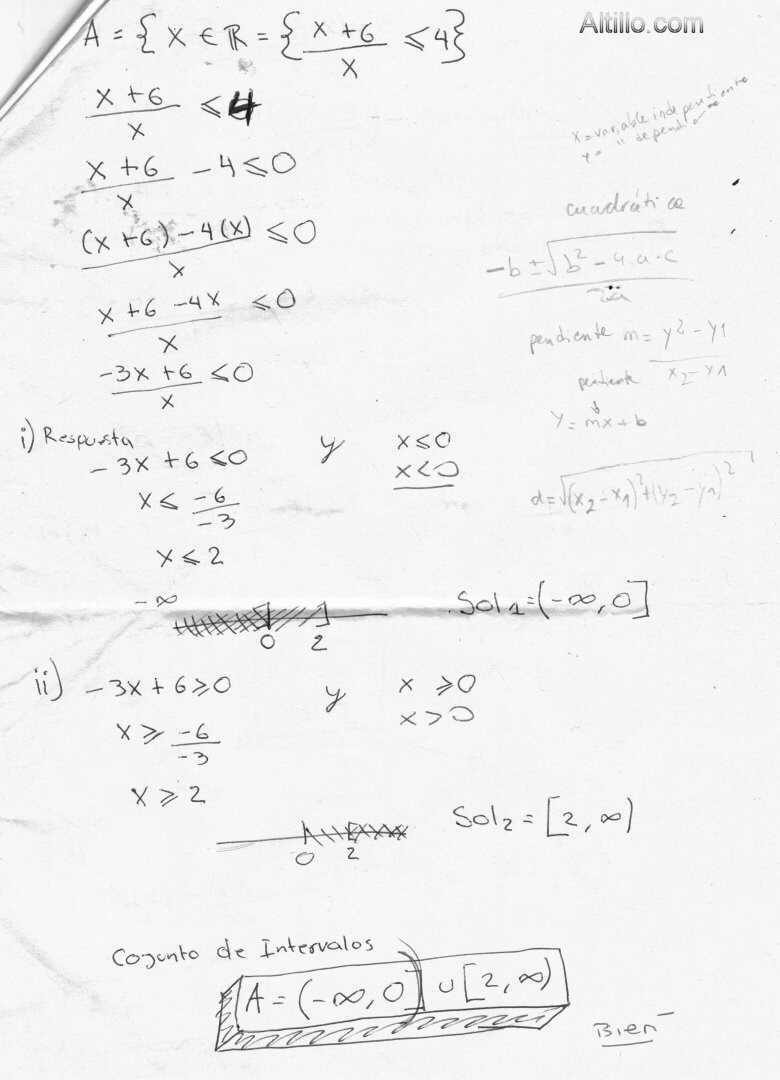 Altillo.com
A = { x ∈ ℝ = { x + 6 / x ≤ 4 }
x + 6 / x ≤ 4
x + 6 / x - 4 ≤ 0
(x + 6) - 4(x) / x ≤ 0
x + 6 - 4x / x ≤ 0
-3x + 6 / x ≤ 0
x = variable independiente
y = " dependiente
cuadrática
-b ± √b² - 4.a.c / 2a
pendiente m = y2 - y1 / x2 - x1
pendiente
↓
y = mx + b
d = √(x2 - x1)² + (y2 - y1)²
i) Respuesta
-3x + 6 ≤ 0 y x ≤ 0
x < 0
x ≤ -6 / -3
x ≤ 2
-∞
0 2
Sol1 = (-∞, 0]
ii) -3x + 6 ≥ 0 y x ≥ 0
x > 0
x ≥ -6 / -3
x ≥ 2
0 2
Sol2 = [2, ∞)
Cojunto de Intervalos
A = (-∞, 0) ∪ [2, ∞)
Bien